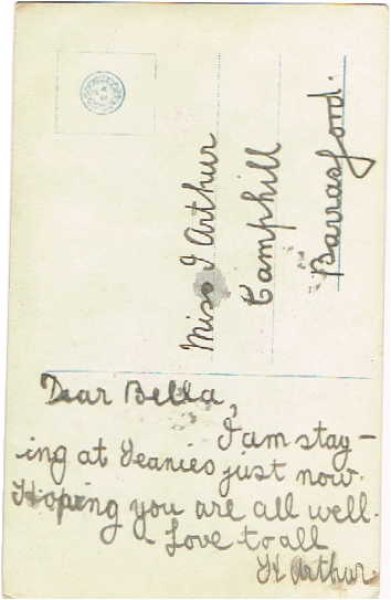 Miss I Arthur
Camphill
Barrasford.
Dear Bella,
I am stay-
ing at Jeanies just now.
Hoping you are all well.
- Love to all
H Arthur